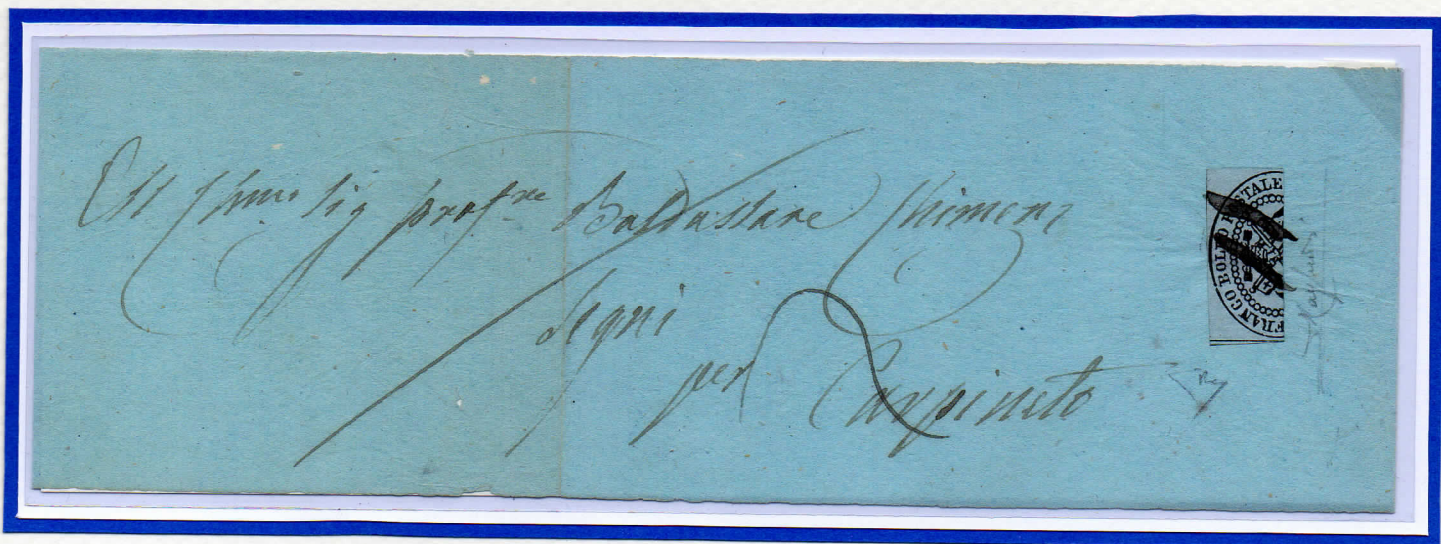 All Illmo Sig profre Baldassare Chimenz
Segni
per Carpineto
FRANCO BOLLO POSTALE